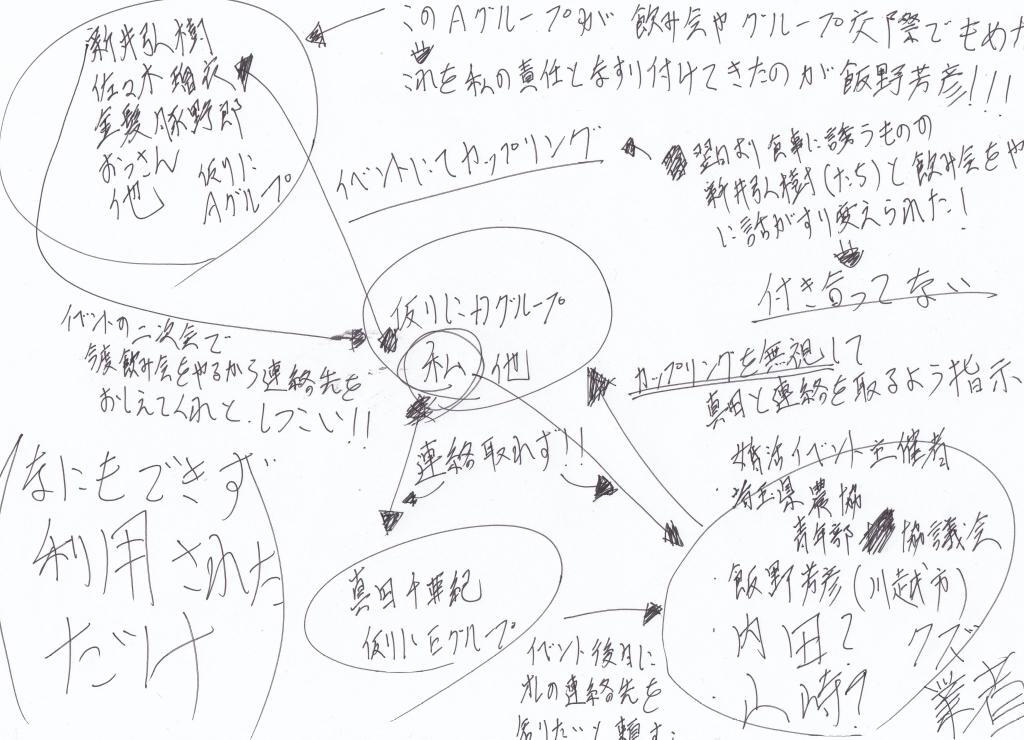 このAグループが飲み会やグループ交際でもめた
これを私の責任となすり付けてきたのが飯野芳彦!!!
新井弘樹
佐々木瑠衣
金髪豚野郎
おっさん
他
仮りに
Aグループ
イベントにてカップリング
翌日より食事に誘うものの
新井弘樹(たち)と飲み会をや
に話がすり変えられた!
付き合ってない
仮りに月グループ
私 他
イベントの二次会で
今度飲み会をやるから連絡先を
おしえてくれと。しつこい!!
カップリングを無視して
真田と連絡を取るよう指示
連絡取れず!!
なにもできず
利用された
だけ
婚活イベント主催者
埼玉県農協
青年部 協議会
・飯野芳彦(川越市)
・内田?
・山崎?
クズ
業者
真田千華紀
仮りにEグループ
イベント後日に
私の連絡先を
知りたいと頼む